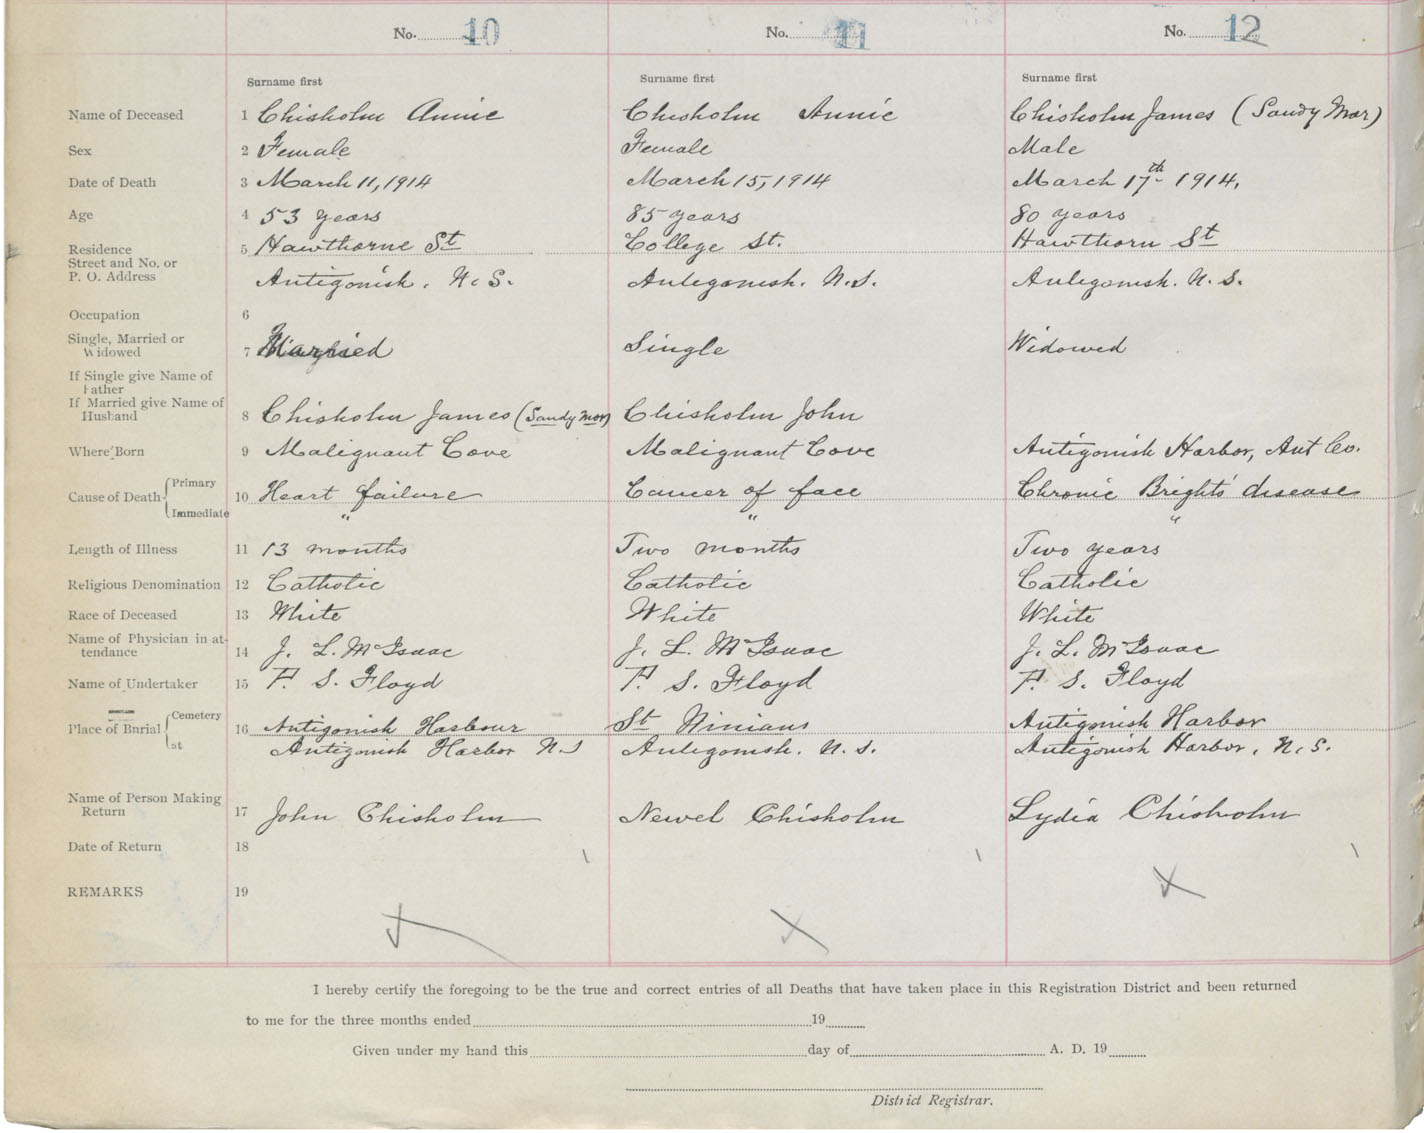 No. 10 No. 11 No. 12
Surname first Surname first Surname first
Name of Deceased 1 Chisholm Annie Chisholm Annie Chisholm James (Sandy Mor)
Sex 2 Female Female Male
Date of Death 3 March 11, 1914 March 15, 1914 March 17th 1914.
Age 4 53 years 85 years 80 years
Residence 5 Hawthorne St College St. Hawthorn St
Street and No. or
P. O. Address Antigonish. N.S. Antigonish. N.S. Antigonish. N.S.
Occupation 6
Single, Married or
Widowed 7 Married Single Widowed
If Single give Name of
Father
If Married give Name of
Husband 8 Chisholm James (Sandy Mor) Chisholm John
Where Born 9 Malignant Cove Malignant Cove Antigonish Harbor, Ant Co.
Cause of Death Primary 10 Heart failure Cancer of face Chronic Brights' disease
Immediate " " "
Length of Illness 11 13 months Two months Two years
Religious Denomination 12 Catholic Catholic Catholic
Race of Deceased 13 White White White
Name of Physician in at-
tendance 14 J. L. McIsaac J. L. McIsaac J. L. McIsaac
Name of Undertaker 15 F. S. Floyd F. S. Floyd F. S. Floyd
Place of Burial Cemetery 16 Antigonish Harbour St Ninians Antigonish Harbor
at Antigonish Harbor N.S Antigonish. N.S. Antigonish Harbor, N.S.
Name of Person Making
Return 17 John Chisholm Newel Chisholm Lydia Chisholm
Date of Return 18
REMARKS 19
I hereby certify the foregoing to be the true and correct entries of all Deaths that have taken place in this Registration District and been returned
to me for the three months ended 19
Given under my hand this day of A. D. 19
District Registrar.